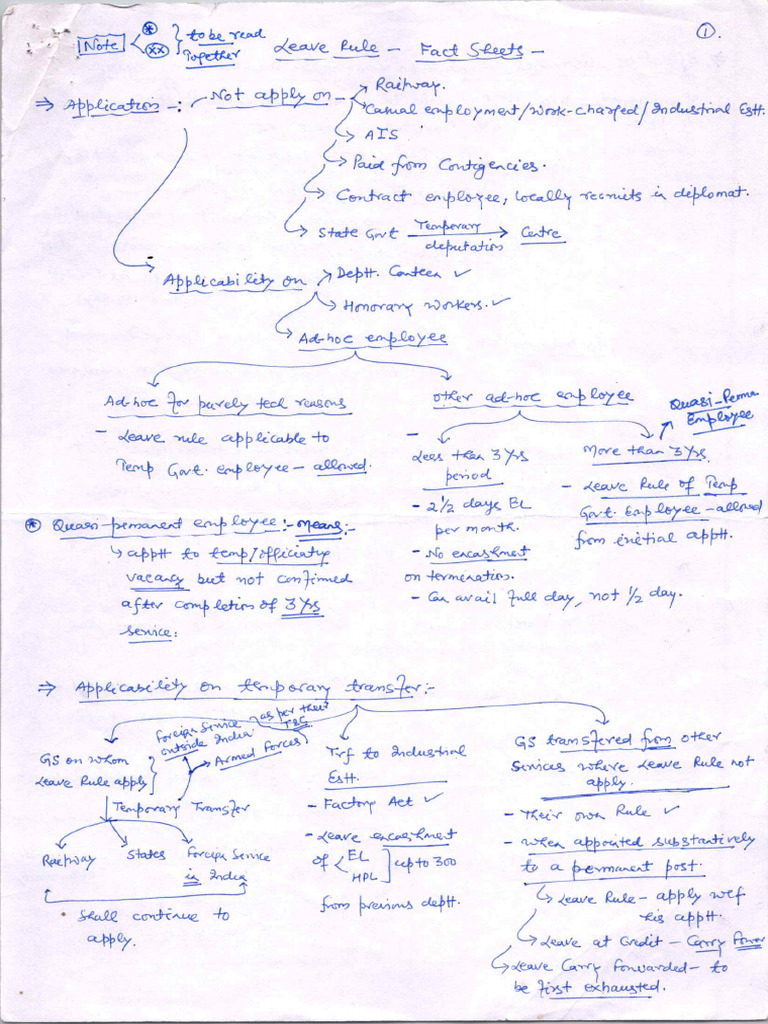 Note * ** } to be read Together
Leave Rule - Fact Sheets -
1.
⇒ Application -: Not apply on - Railway.
Casual employment/work-charged/industrial Estt.
AIS
Paid from Contigencies.
Contract employee, locally recruits in diplomat.
State Govt Temporary deputation → Centre
Applicability on Deptt. Canteen ✓
Honorary workers. ✓
Ad-hoc employee
Ad-hoc for purely tech reasons
- Leave rule applicable to
Temp Govt. employee - allowed.
other ad-hoc employee
Quasi-Perma
Employee
-
Less than 3 Yrs
period
- 2 1/2 days EL
per month.
- No encashment
on termination.
- Can avail full day, not 1/2 day.
More than 3 Yrs.
- Leave Rule of Temp
Govt. Employee - allowed
from initial appt.
* Quasi-permanent employee :- Means:-
↳ apptt to temp/officiatig
vacancy but not confirmed
after completion of 3 Yrs
service:
⇒ Applicability on temporary transfer:-
GS on whom
Leave Rule apply
Foreign Service
outside India
as per their
T&C
Armed Forces
Temporary Transfer
Railway States Foreign Service
in India
Shall continue to
apply.
Trf to Industrial
Estt.
- Factory Act ✓
- Leave encashment
of < EL HPL ] upto 300
from previous deptt.
GS transfered from other
Services where Leave Rule not
apply.
- Their own Rule ✓
- When appointed substantively
to a permanent post.
↳ Leave Rule - apply wef
his apptt.
↳ Leave at Credit - Carry Forwar
↳ Leave Carry forwarded - to
be first exhausted.